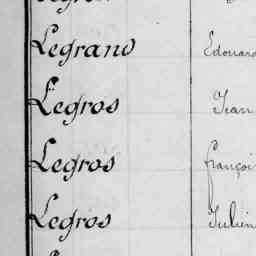 Legrand Edouard
Legros Jean
Legros François
Legros Julien